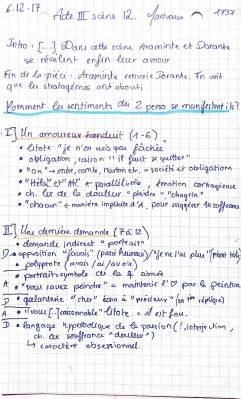 6.12.17
Acte III scène 12. Marivaux 1737
Intro: [...] Dans cette scène Araminte et Dorante
se révèlent enfin leur amour
Fin de la pièce: Araminte renvoie Dorante. On voit
que les stratagèmes ont abouti
Comment les sentiments des 2 perso se manifestent ils?
I] Un amoureux éconduit (1-6)
• litote "je n'en suis pas fâchée"
• obligation, raison "il faut se quitter"
• "on" = = société et obligations
• "Hélas" et "Ah" = parallélisme, émotion contagieuse
• ch. lex de la douleur "plaidre" "chagrin"
• "chacun" = manière implicite d'A. pour suggérer sa souffrance
II] Une dernière demande (7 à 12)
• demande indirect "portrait"
D • opposition "j'avais" (passé heureux) / "je ne l'ai plus"
• polyptote (avais / ai / avoir)
• portrait = symbole de la aimée
A • "vous savez peindre" = maintenir l' par la peinture
D • galanterie "cher" écho à "précieux" (réplique)
A • "vous [...] raisonnable" litote = il est fou.
D • langage hyperbolique de la passion (!, interjection,
ch. lex souffrance "douleur")
↳ caractère obsessionnel.